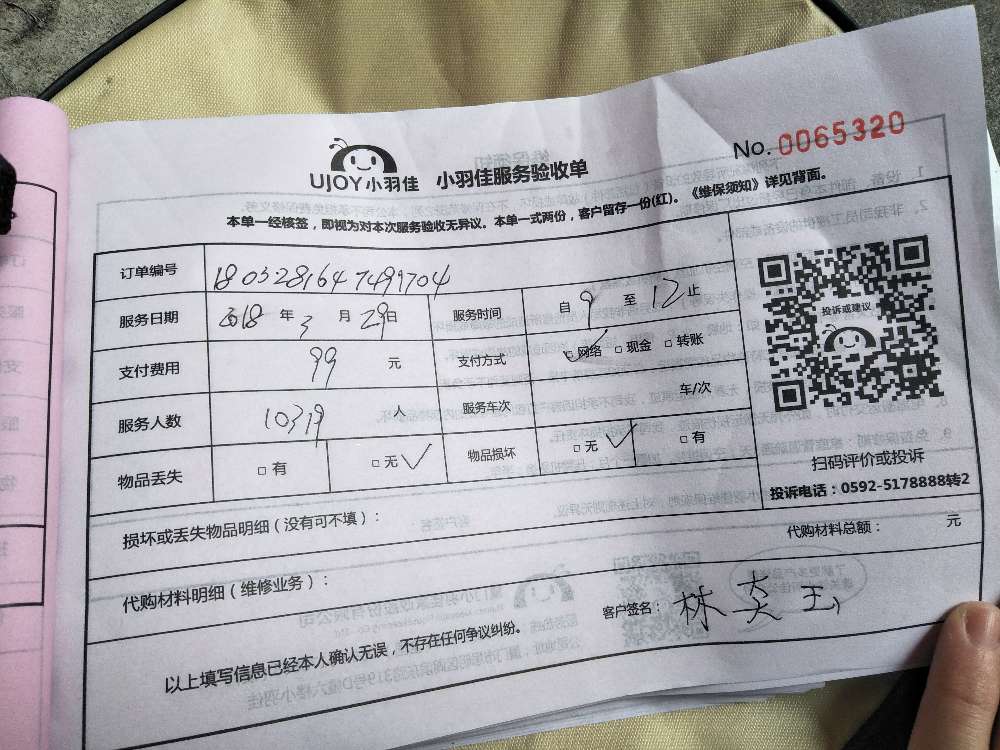 No. 0065320
UJOY小羽佳 小羽佳服务验收单
本单一经核签，即视为对本次服务验收无异议。本单一式两份，客户留存一份(红)。《维保须知》详见背面。
订单编号 1803281647499704
服务日期 2018 年 3 月 29 日 服务时间 自 9 至 12 止
支付费用 99 元 支付方式 ☑ 网络 □ 现金 □ 转账
服务人数 10379 人 服务车次 车/次
物品丢失 □ 有 □ 无 ✓ 物品损坏 □ 无 ✓ □ 有
投诉或建议
扫码评价或投诉
投诉电话：0592-5178888转2
损坏或丢失物品明细（没有可不填）：
代购材料总额： 元
代购材料明细（维修业务）：
客户签名： 林奕玉
以上填写信息已经本人确认无误，不存在任何争议纠纷。